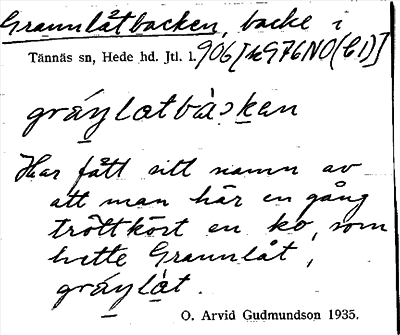 Grannlåtbacken, backe i
Tännäs sn, Hede hd. Jtl. l. 906
gráy̱latbàcḵen
Har fått sitt namn av
att man här en gång
tröttkört en ko, som
hette Grannlåt,
gráy̱la̱t.
O. Arvid Gudmundson 1935.